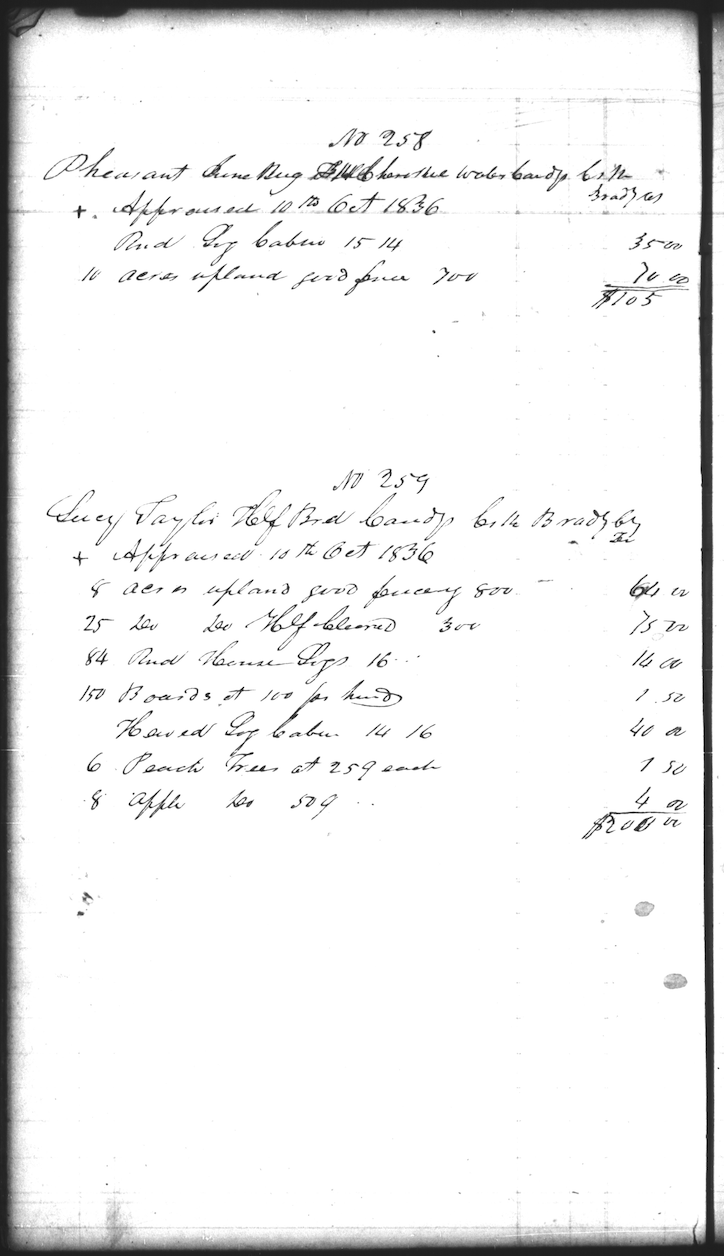 No 258
Pheasant June Bug Full Cherokee Waters Candys Crk
Brady Co
+ . Appraised 10th Oct 1836
Rnd Log Cabin 15 14 35 00
10 acres upland good fence 700 70 00
$105
No 259
Lucy Taylor Hlf Brd Candys Crk Brady Cy
Te
+ Appraised 10th Oct 1836
8 acres upland good fencing 800 64 00
25 Do Do Hlf Cleared 300 75 00
84 Rnd House Logs 16 14 00
150 Boards at 100 per hund 1 50
Hewed Log Cabin 14 16 40 00
6 Peach Trees at 25¢ each 1 50
8 Apple Do 50¢ 4 00
$200 00